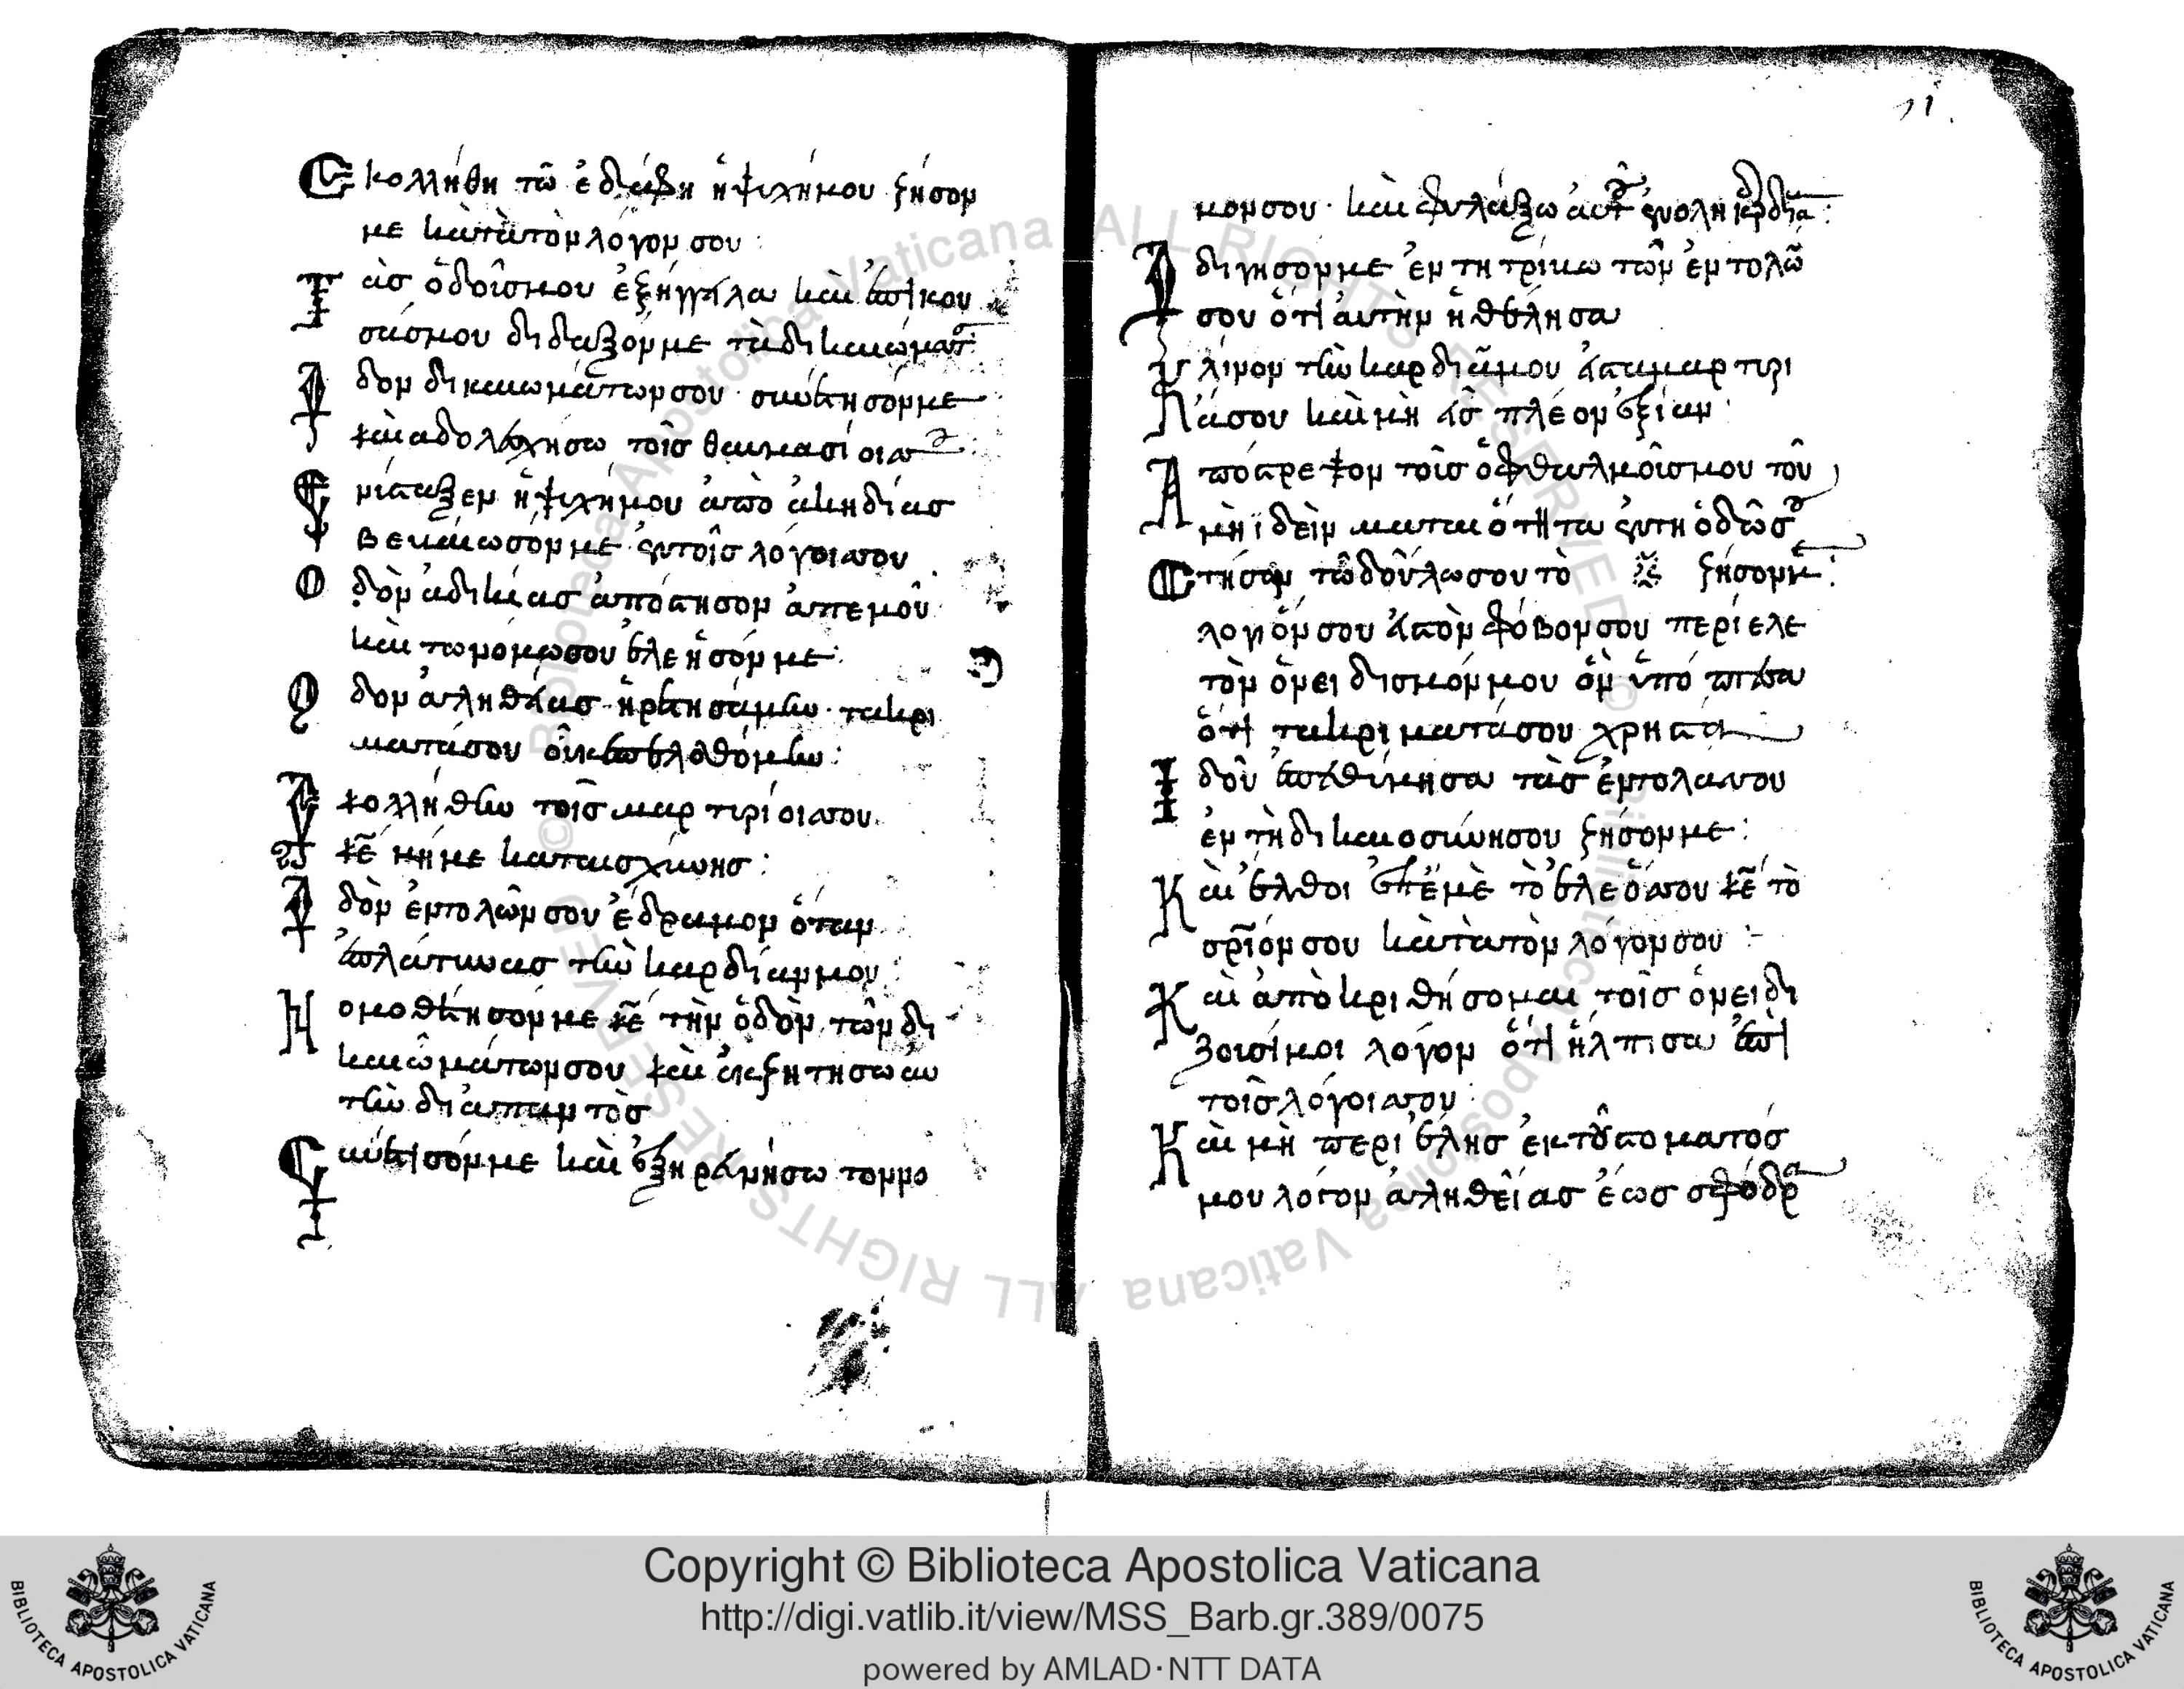 Εκολλήθη τῶ ἐδάφη ἡ ψιχή μου ζήσον
με κατὰ τὸν λόγον σου :
Τὰσ ὁδοῖσ μου ἐξήγγειλα καὶ ἐπίκου
σάσ μου διδαξόν με τὰ δικαιώματ
δον δικαιωμάτων σου συνέτησόν με
καὶ αδολεσχήσω τοῖσ θαυμασίοισ
Ενίσταξεν ἡ ψιχή μου ἀπὸ ἀκηδίασ
βεκαίωσόν με ἐν τοῖσ λόγοισ σου
Οδὸν ἀδικίασ ἀπόστησον ἀπεμοῦ
καὶ τω νόμω σου ἐλεήσόν με :
Οδον ἀληθείασ ἡρετησάμην τα κρι
ματά σου οὐκ ἐπελαθόμην :
κολλήθην τοῖσ μαρτιρίοισ σου
κε̄ μή με καταισχύνησ :
δὸν ἐντολῶν σου ἔδραμον ὅταν
ἐπλάτυνασ τὴν καρδίαν μου :
Νομοθέτησόν με κε̄ τὴν ὁδὸν τῶν δι
καιωμάτων σου καὶ ἐκζητησω αυ
τὴν διἀπαντὸσ
Συνέτισόν με καὶ ἐξηράυνήσω τον νο
μον σου · καὶ φυλάξω ἀυτ ἐν ολη καρδία :
διγησον με ἐν τη τρίβω τῶν ἐντολῶ
σου ὅτι ἀυτὴν ἠθέλησα
κλίνον τὴν καρδίαν μου εἰσ τα μαρτιρι
άσου καὶ μὴ εἰσ πλέονεξίαν :
Απόστρεψον τοῖσ ὀφθαλμοῖσ μου τοῦ
μὴ ἰδεὶν ματαιότητα ἐν τη ὁδῶ σ
Στήσον τῶ δοῦλωσου τὸ ζήσομ :
λογιόν σου εἰστὸν φόβον σου περίελε
τὸν ὀνειδισμόν μου ὃν ὑπόπτευσα
ὅτι τα κριματά σου χρηστα
Ιδοῦ ἐπεθύμησα τὰσ ἐντολασ σου
ἐν τῆ δικαιοσύνη σου ζῆσόν με :
Καὶ ἔλθοι ἐπ ἐμὲ τὸ ἔλεόσ σου κε̄ τὸ
σρ̄ιόν σου κατὰ τὸν λόγον σου :
Καὶ ἀποκριθήσομαι τοῖσ ὀνειδι
ζουσί μοι λογον ὅτι ἤλπισα ἐπὶ
τοῖσ λόγοισ σου :
Καὶ μὴ περιέλησ ἐκ τοῦ στοματόσ
μου λογον ἀληθείασ ἕωσ σφόδρα
Copyright © Biblioteca Apostolica Vaticana
http://digi.vatlib.it/view/MSS_Barb.gr.389/0075
powered by AMLAD·NTT DATA
BIBLIOTECA APOSTOLICA VATICANA
BIBLIOTECA APOSTOLICA VATICANA